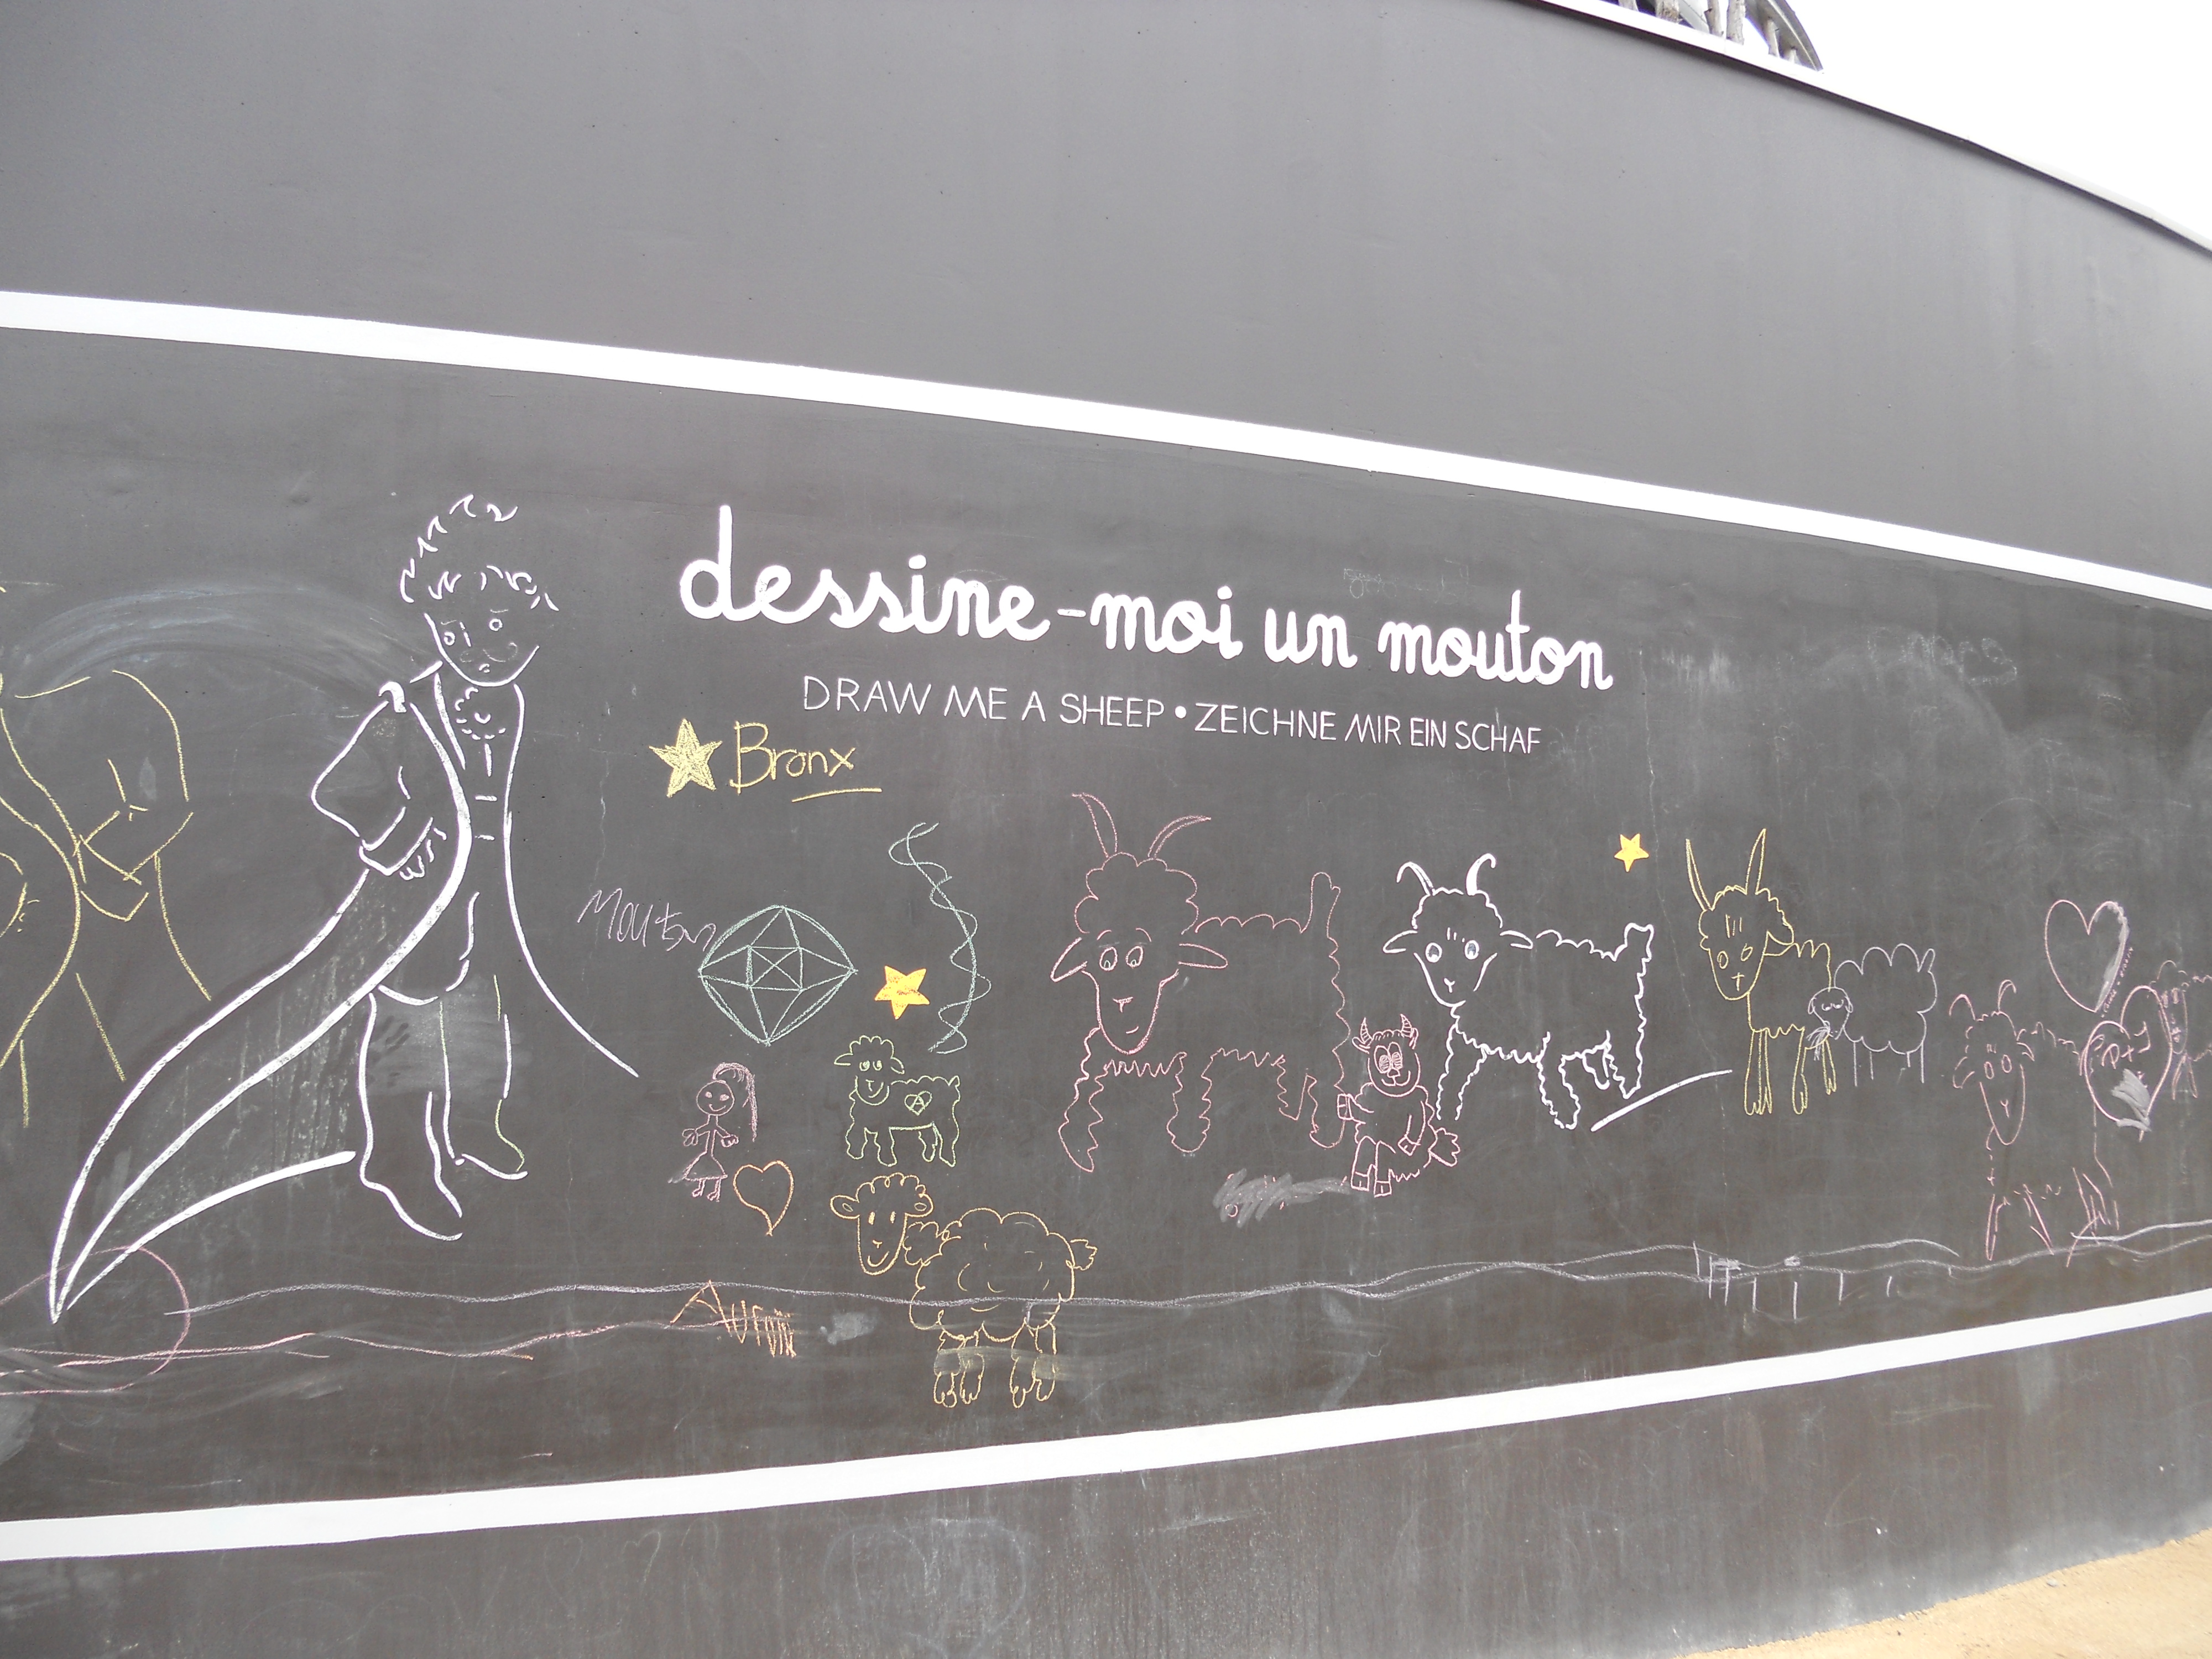 dessine-moi un mouton
DRAW ME A SHEEP • ZEICHNE MIR EIN SCHAF
Bronx
Mouton
A